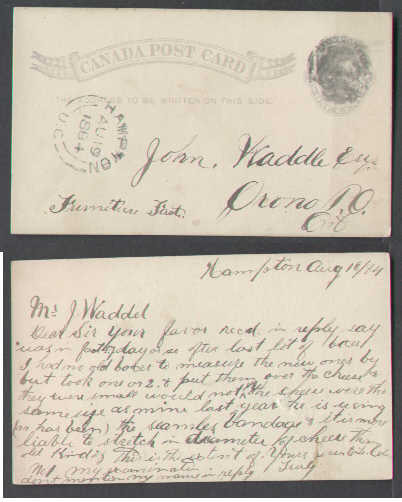 CANADA POST CARD
THE ADDRESS TO BE WRITTEN ON THIS SIDE
HAMPTON
AU 19
1884
John Waddle Esq
Orono P.O.
Furniture Fact.
Ont
Hampton Aug 19/84
Mr J Waddel
Dear Sir Your favor recd in reply say
was in day or so after last lot of
I had no old to measure the new ones by
but took one or 2 & put them over the cheese
they were small would not the cheese were the
same size as mine last year he is using
has been) the seamless bandage & it is more
liable to stretch in diameter for cheese than
old Kind This is the extent of Yours
my examination Truly
dont mention my name in reply